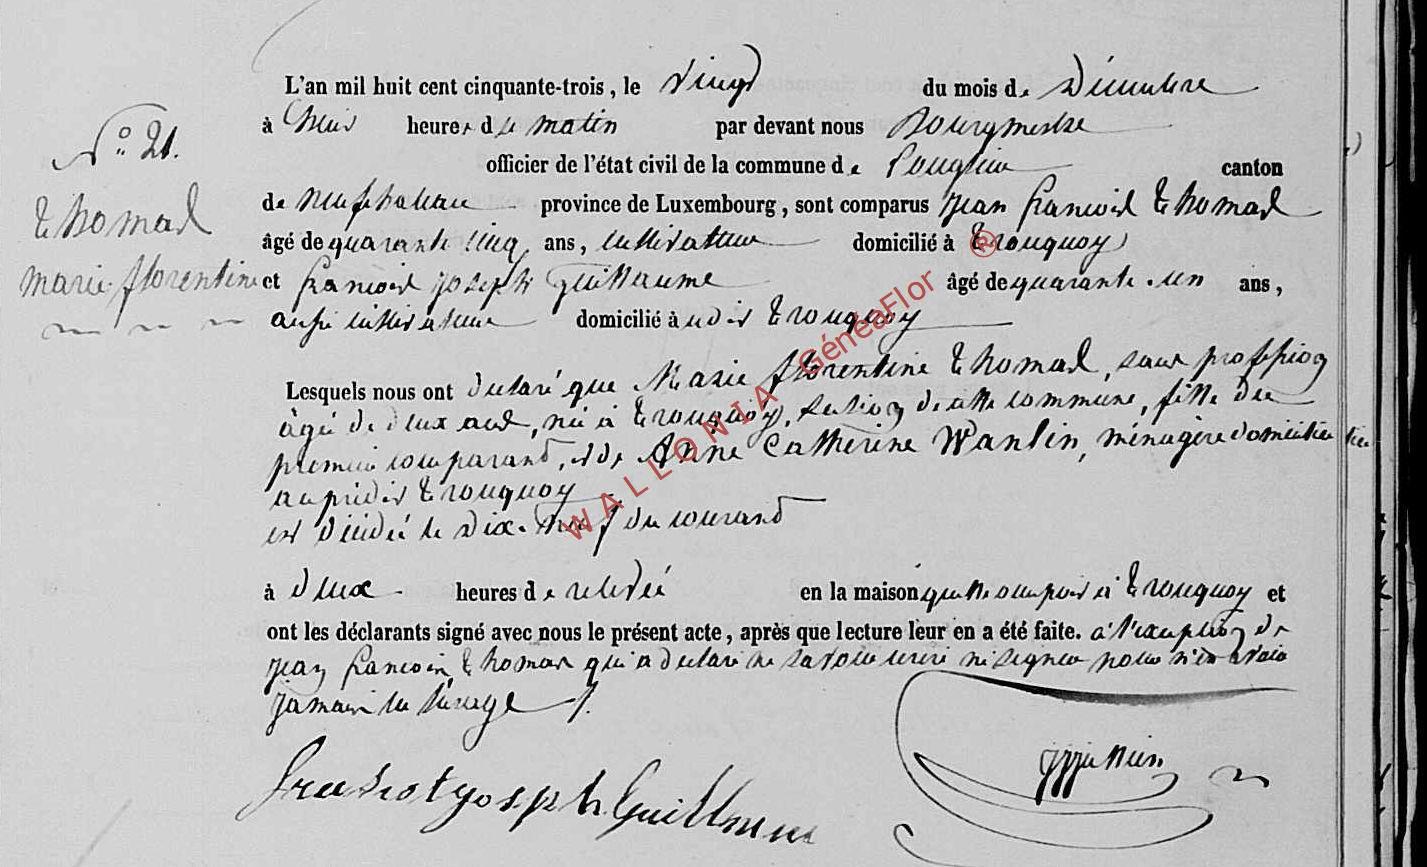 L'an mil huit cent cinquante-trois, le vingt du mois de Décembre
à heures du matin par devant nous Bourgmestre
officier de l'état civil de la commune de Longlier canton
de Neufchateau province de Luxembourg, sont comparus Jean francois Thomas
âgé de quarante cinq ans, cultivateur domicilié à Trouquoy
et francois joseph Guillaume âgé de quarante-un ans,
aussi cultivateur domicilié à udit Trouquoy
Lesquels nous ont declaré que Marie florentine Thomas, sans profession
âgée de deux ans, née à Trouquoy, section de cette commune, fille du
premier comparant, et de Anne Catherine Wanlin, ménagère domiciliée
au prédit Trouquoy
est décédée le dix-neuf du courant
à deux heures de relevée en la maison qu'elle occupoit à Trouquoy et
ont les déclarants signé avec nous le présent acte, après que lecture leur en a été faite. à l'exception de
Jean francois Thomas qui a declaré ne savoir écrire ni signer pour n'en avoir
jamais eu l'usage
joseph Guillaume
N° 21.
Thomas
Marie florentine
WALLONIA GénéaFlor ®